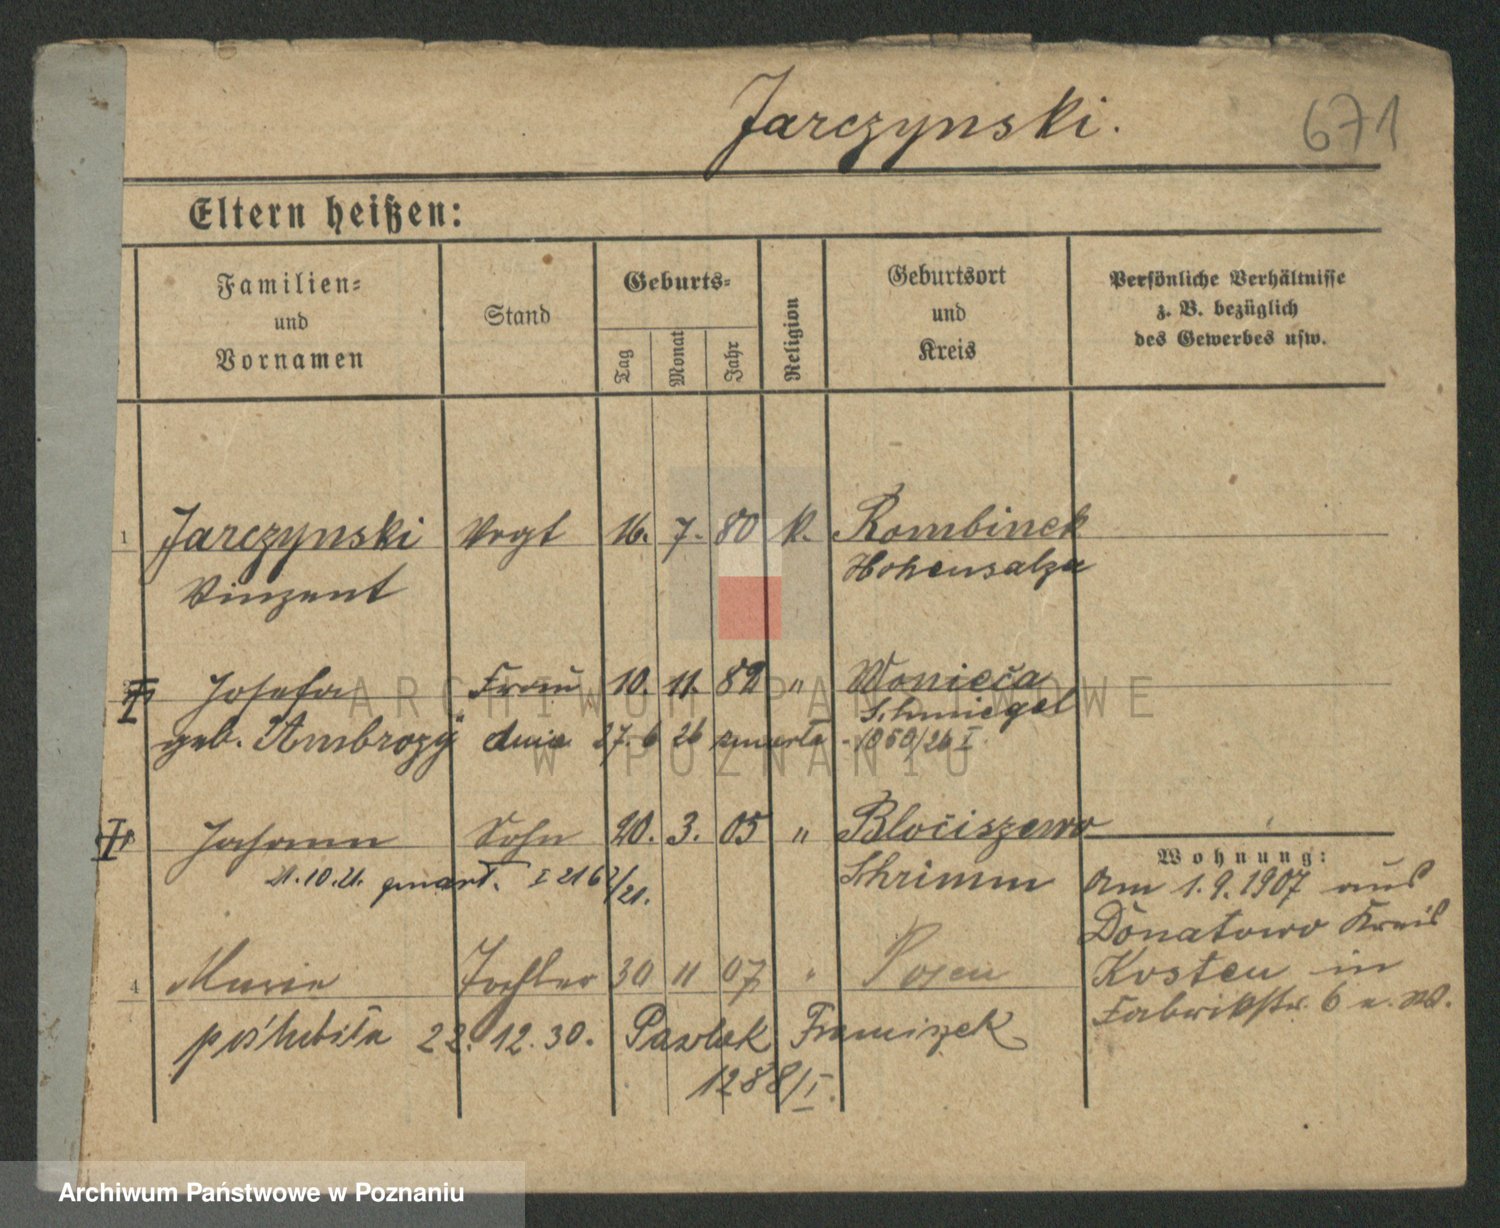 Jarczynski.
671
Eltern heißen:
Familien- und Vornamen
Stand
Geburts-
Tag
Monat
Jahr
Religion
Geburtsort und Kreis
Persönliche Verhältnisse z. B. bezüglich des Gewerbes usw.
1 Jarczynski Vogt 16. 7. 80 k. Rombinek
Vinzent Hohensalza
Josefa Frau 10. 11. 82 " Woniesc
Schmiegel
geb. Ambrozy dnia 27. 6 26 zmarła - 1050/26 I
Johann Sohn 20. 3. 05 " Blociszewo
Schrimm
21.10.21. zmarł. I 2167/21.
4 Marie Tochter 30 11 07 " Posen
poślubiła 22. 12. 30. Pawlak Franciszek
1288/I.
Wohnung:
Am 1.9.1907 aus
Donatowo Kreis
Kosten in
Fabrikstr. 6 a. W.
ARCHIWUM PAŃSTWOWE
W POZNANIU
Archiwum Państwowe w Poznaniu